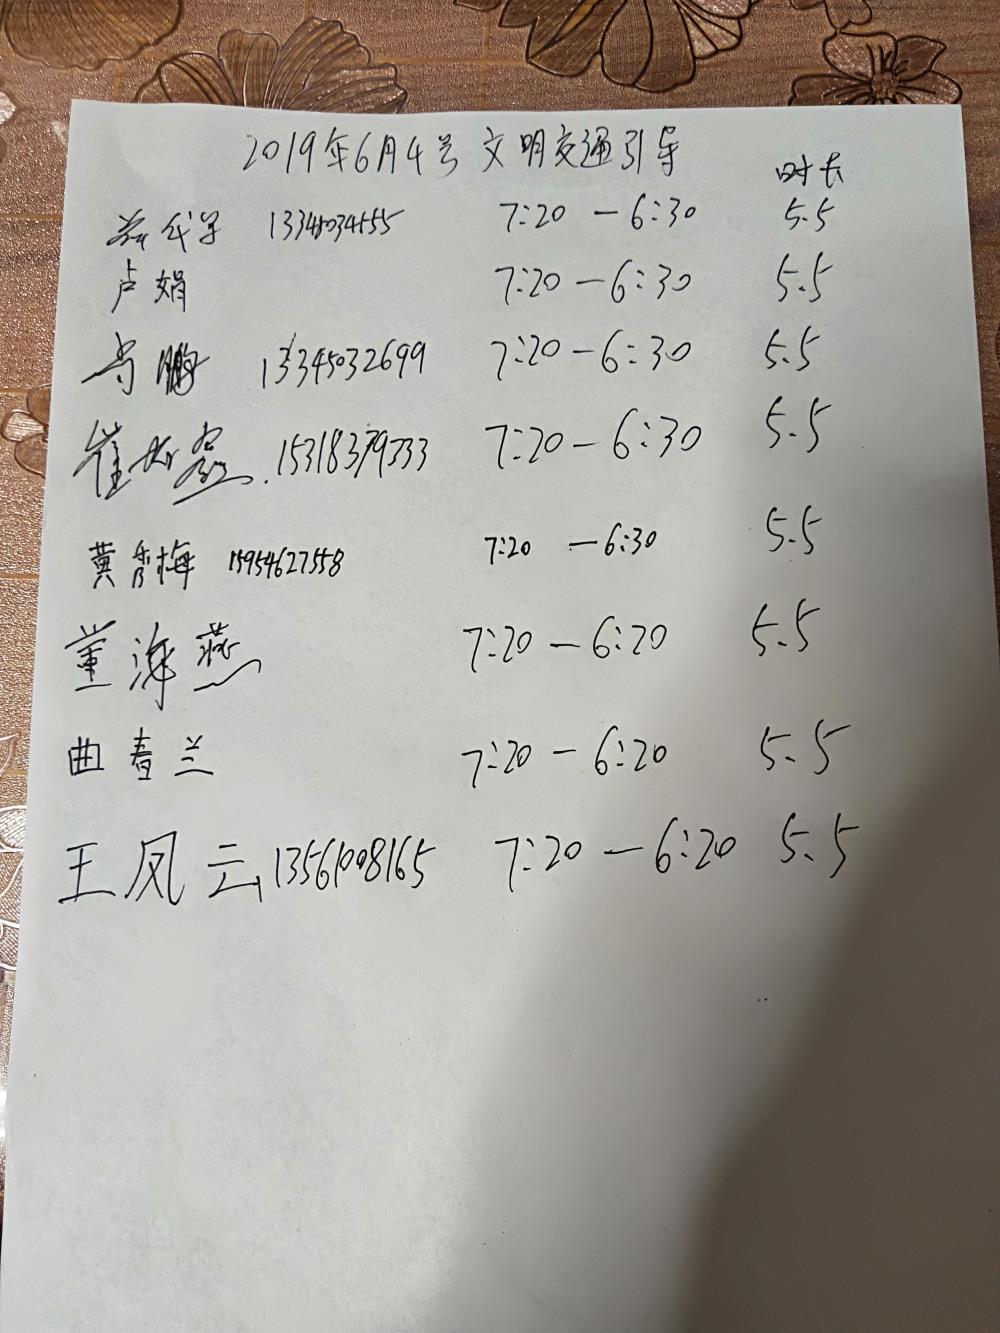 2019年6月4号 文明交通引导
时长
13345034555 7:20 — 6:30 5.5
卢娟 7:20 — 6:30 5.5
鹏 13345032699 7:20 — 6:30 5.5
崔 15318379333 7:20 — 6:30 5.5
黄秀梅 15954627558 7:20 — 6:30 5.5
董海燕 7:20 — 6:20 5.5
曲春兰 7:20 — 6:20 5.5
王凤云 13561008165 7:20 — 6:20 5.5